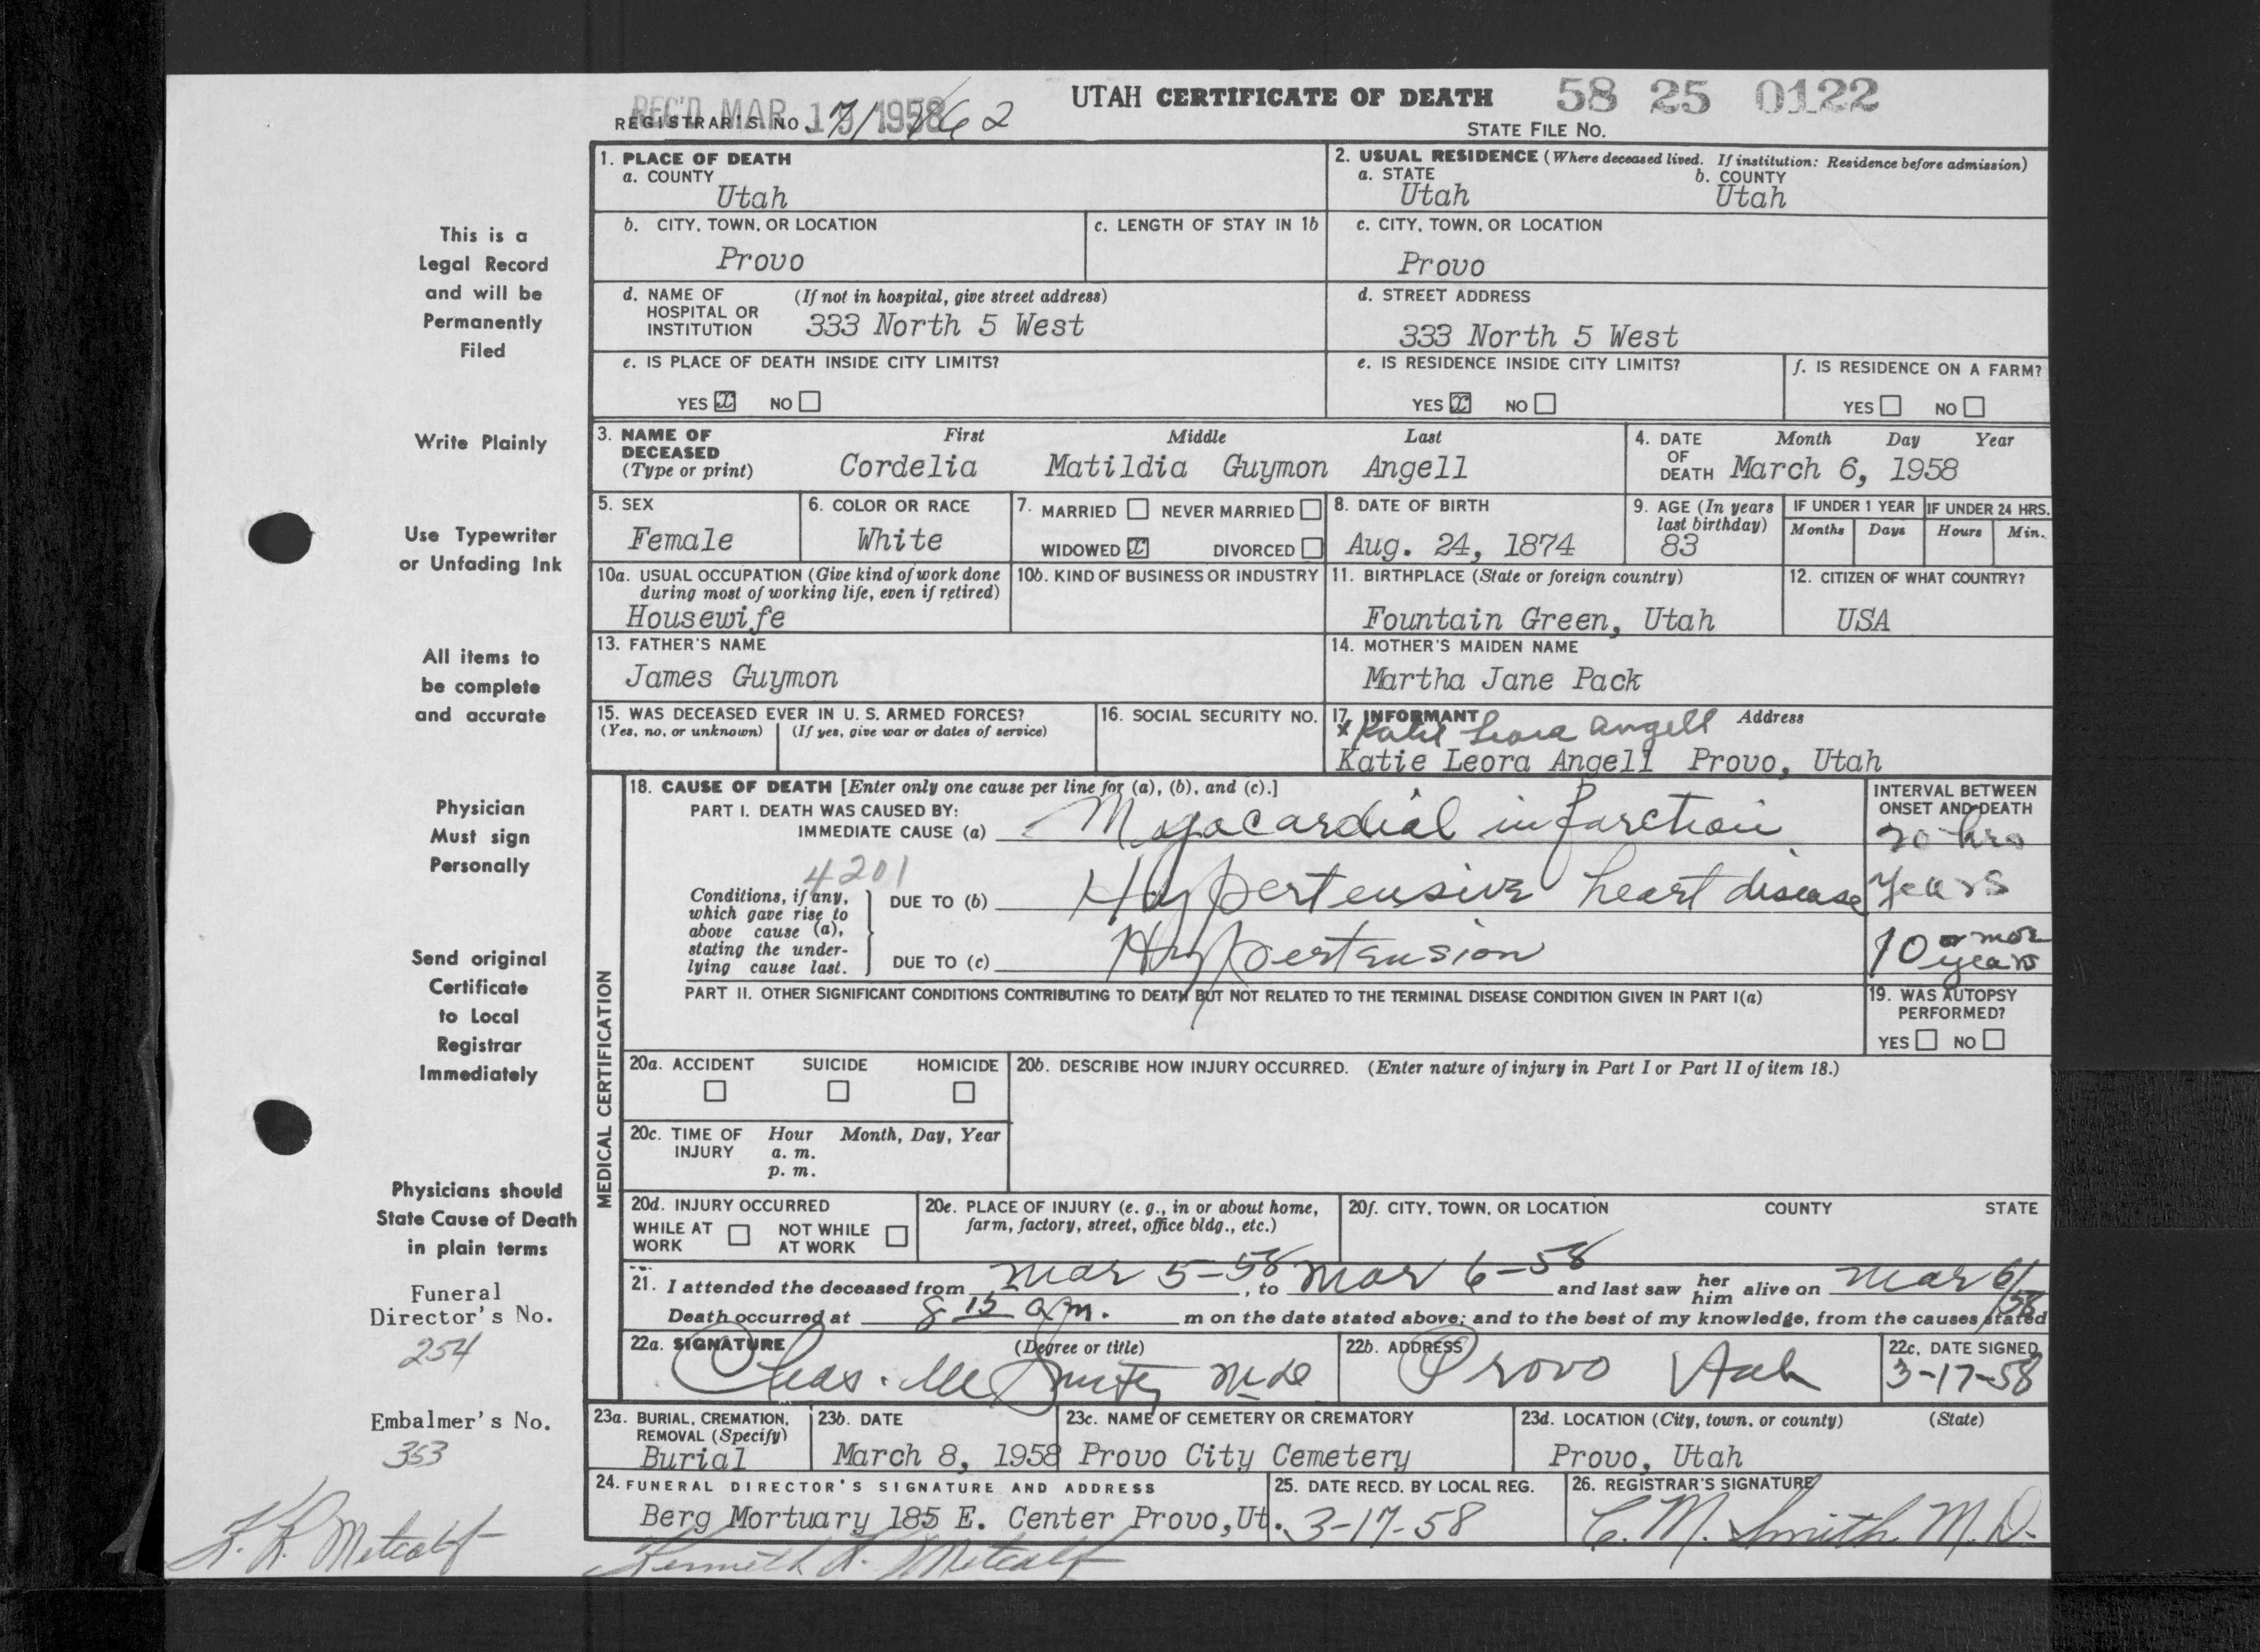 UTAH CERTIFICATE OF DEATH
58 25 0122
REC'D MAR 1958
REGISTRAR'S NO. 162
STATE FILE NO.
This is a
Legal Record
and will be
Permanently
Filed
Write Plainly
Use Typewriter
or Unfading Ink
All items to
be complete
and accurate
Physician
Must sign
Personally
Send original
Certificate
to Local
Registrar
Immediately
Physicians should
State Cause of Death
in plain terms
Funeral
Director's No.
254
Embalmer's No.
353
K. K. Metcalf
1. PLACE OF DEATH
a. COUNTY
Utah
2. USUAL RESIDENCE (Where deceased lived. If institution: Residence before admission)
a. STATE b. COUNTY
Utah Utah
b. CITY, TOWN, OR LOCATION
Provo
c. LENGTH OF STAY IN 1b
c. CITY, TOWN, OR LOCATION
Provo
d. NAME OF (If not in hospital, give street address)
HOSPITAL OR
INSTITUTION 333 North 5 West
d. STREET ADDRESS
333 North 5 West
e. IS PLACE OF DEATH INSIDE CITY LIMITS?
YES x NO
e. IS RESIDENCE INSIDE CITY LIMITS?
YES x NO
f. IS RESIDENCE ON A FARM?
YES NO
3. NAME OF First Middle Last
DECEASED
(Type or print) Cordelia Matildia Guymon Angell
4. DATE Month Day Year
OF
DEATH March 6, 1958
5. SEX
Female
6. COLOR OR RACE
White
7. MARRIED NEVER MARRIED
WIDOWED x DIVORCED
8. DATE OF BIRTH
Aug. 24, 1874
9. AGE (In years
last birthday)
83
IF UNDER 1 YEAR IF UNDER 24 HRS.
Months Days Hours Min.
10a. USUAL OCCUPATION (Give kind of work done
during most of working life, even if retired)
Housewife
10b. KIND OF BUSINESS OR INDUSTRY
11. BIRTHPLACE (State or foreign country)
Fountain Green, Utah
12. CITIZEN OF WHAT COUNTRY?
USA
13. FATHER'S NAME
James Guymon
14. MOTHER'S MAIDEN NAME
Martha Jane Pack
15. WAS DECEASED EVER IN U. S. ARMED FORCES?
(Yes, no, or unknown) (If yes, give war or dates of service)
16. SOCIAL SECURITY NO.
17. INFORMANT Address
x Katie Leora Angell
Katie Leora Angell Provo, Utah
MEDICAL CERTIFICATION
18. CAUSE OF DEATH [Enter only one cause per line for (a), (b), and (c).]
INTERVAL BETWEEN
ONSET AND DEATH
PART I. DEATH WAS CAUSED BY:
IMMEDIATE CAUSE (a) Myocardial infarction 20 hrs
4201
Conditions, if any,
which gave rise to
above cause (a),
stating the under-
lying cause last.
DUE TO (b) Hypertensive heart disease years
DUE TO (c) Hypertension 10 or more years
PART II. OTHER SIGNIFICANT CONDITIONS CONTRIBUTING TO DEATH BUT NOT RELATED TO THE TERMINAL DISEASE CONDITION GIVEN IN PART I(a)
19. WAS AUTOPSY
PERFORMED?
YES NO
20a. ACCIDENT SUICIDE HOMICIDE
20b. DESCRIBE HOW INJURY OCCURRED. (Enter nature of injury in Part I or Part II of item 18.)
20c. TIME OF Hour Month, Day, Year
INJURY a. m.
p. m.
20d. INJURY OCCURRED
WHILE AT NOT WHILE
WORK AT WORK
20e. PLACE OF INJURY (e. g., in or about home,
farm, factory, street, office bldg., etc.)
20f. CITY, TOWN, OR LOCATION COUNTY STATE
21. I attended the deceased from Mar 5-58, to Mar 6-58 and last saw her him alive on Mar 6/58
Death occurred at 8 15 am. m on the date stated above; and to the best of my knowledge, from the causes stated
22a. SIGNATURE (Degree or title)
Chas. M. Smith MD
22b. ADDRESS
Provo Utah
22c. DATE SIGNED
3-17-58
23a. BURIAL, CREMATION,
REMOVAL (Specify)
Burial
23b. DATE
March 8, 1958
23c. NAME OF CEMETERY OR CREMATORY
Provo City Cemetery
23d. LOCATION (City, town, or county) (State)
Provo, Utah
24. FUNERAL DIRECTOR'S SIGNATURE AND ADDRESS
Berg Mortuary 185 E. Center Provo, Ut.
Kenneth K. Metcalf
25. DATE RECD. BY LOCAL REG.
3-17-58
26. REGISTRAR'S SIGNATURE
C. M. Smith M. D.